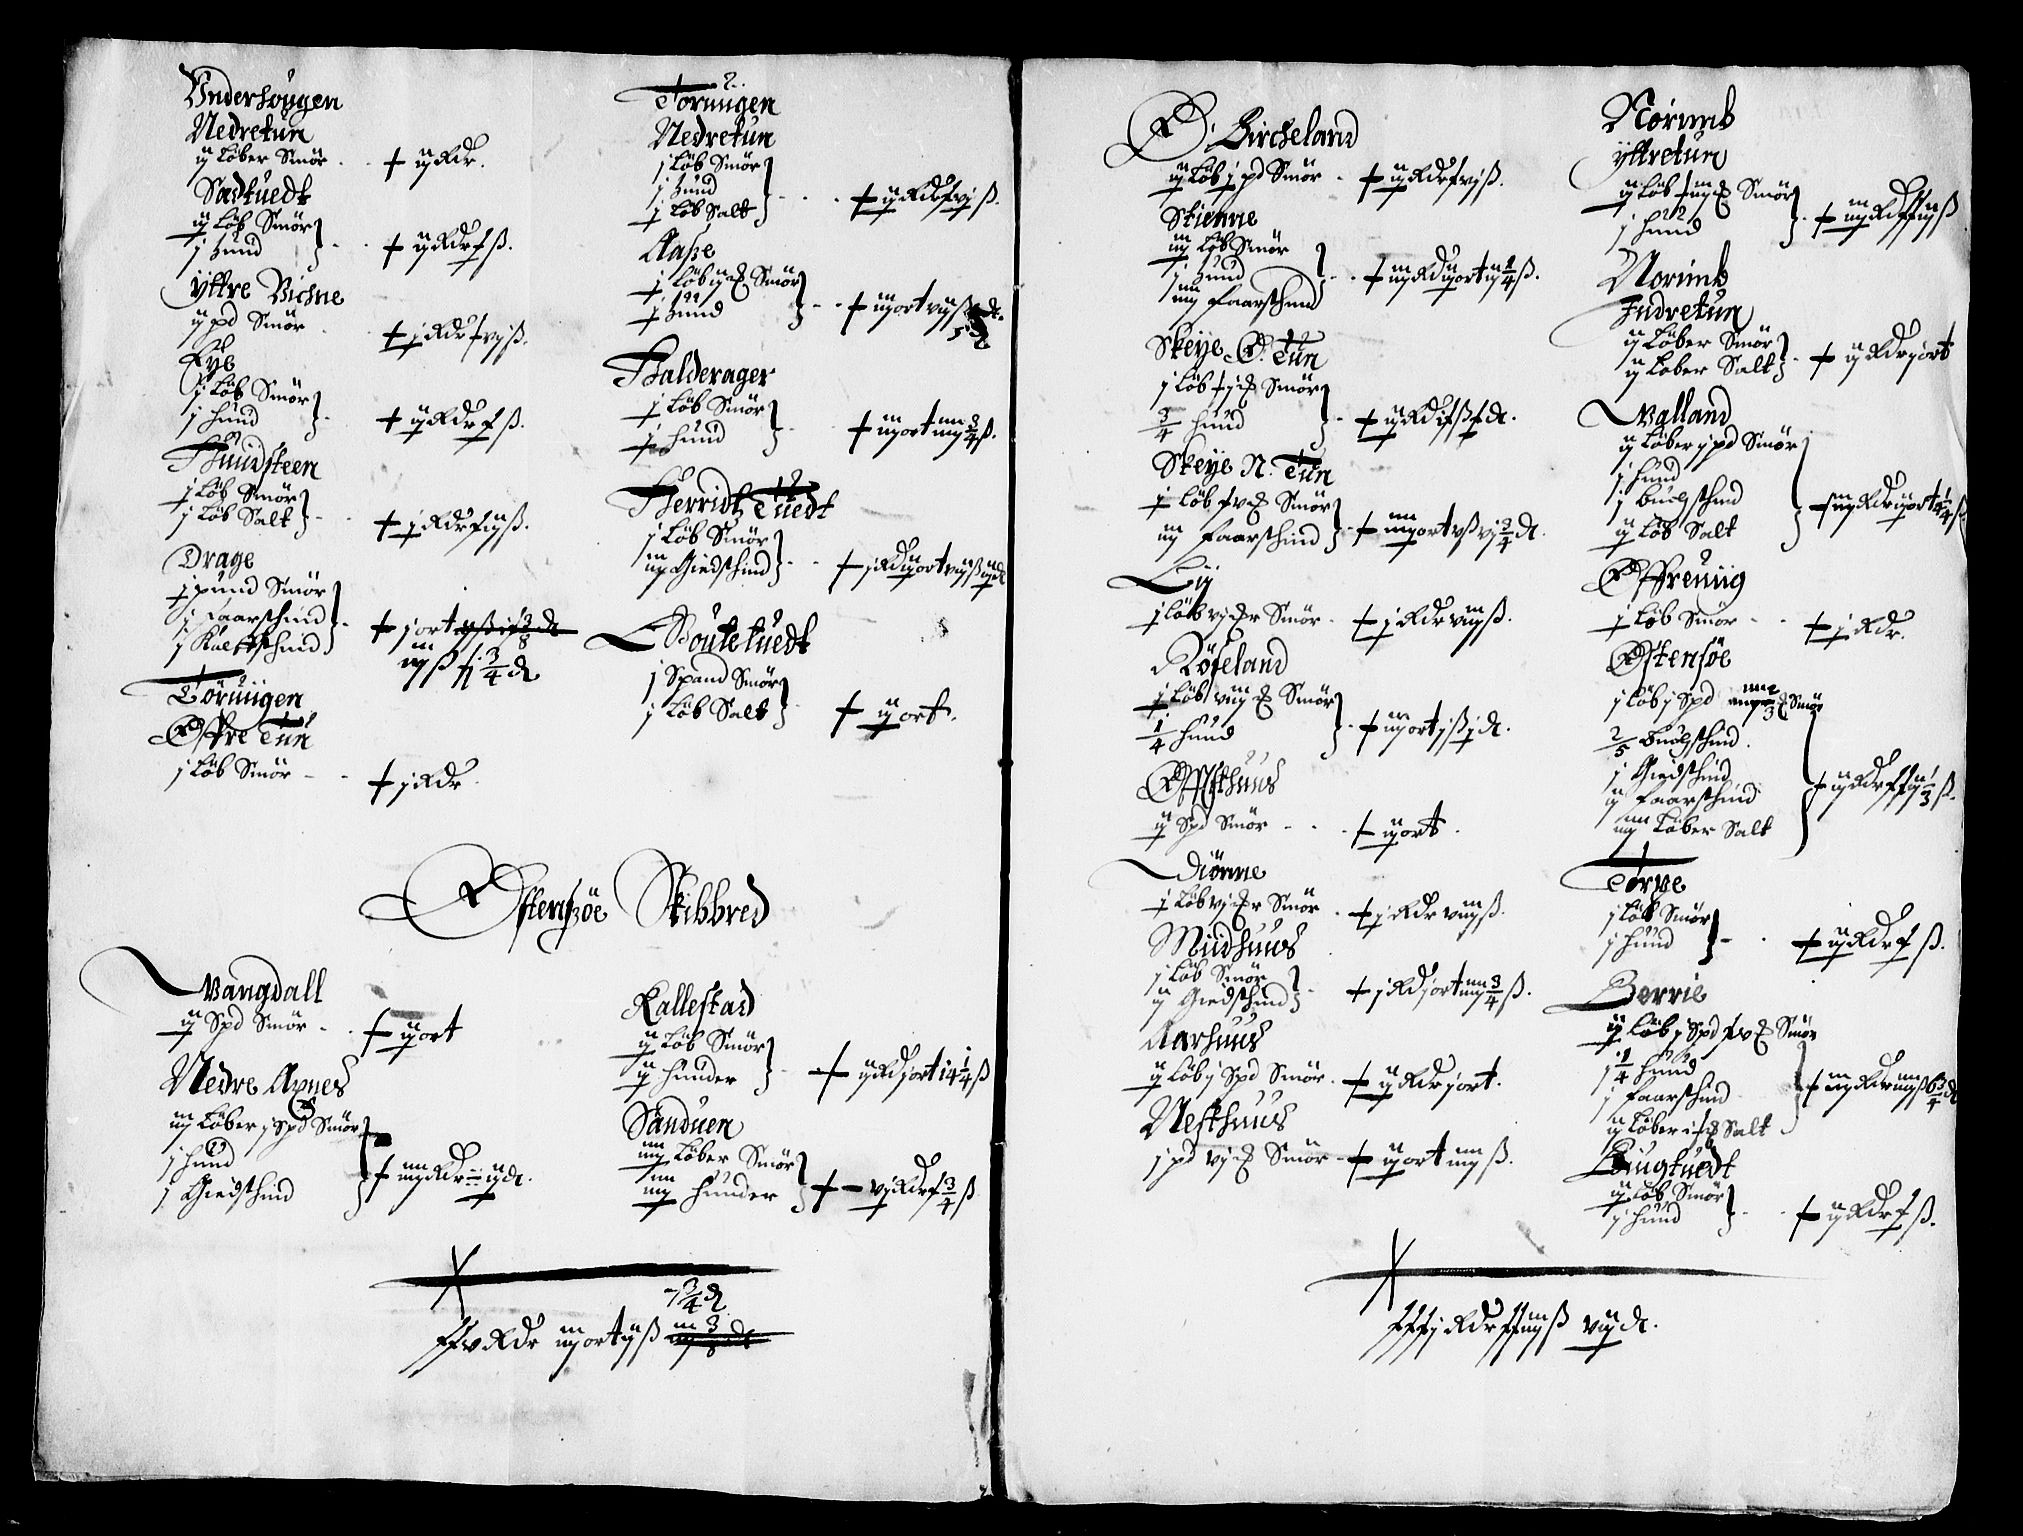 Vndersougen
Nedretun
ij Løber Smør - - + ij Rdr.
Sadtuedt
ij Løb Smør
j Hund - - + ij Rdr f ß.
Yttre Vichne
ij pd Smør - + j Rdr f vj ß.
Rye
j Løb Smør
j Hund - + ij Rdr f ß.
Hundsteen
j Løb Smør
j Løb Salt - - + j Rdr f ij ß.
Drage
j pund Smør
j Faarschind
j Kalffschind - + j ort
iij ß f j 3/4 d
Tørüigen
Øffre Tun
j Løb Smør - - + j Rdr
Torüigen
Nedretun
j Løb Smør
j Hund
j Løb Salt - - + ij Rdr f vj ß.
Aaße
j Løb ij Smør
j Hund - - + iij ort vij ß
Halderager
j Løb Smør
j Hund - - + iij ort iiij 3/4 ß.
Herridz Tuedt
j Løb Smør
iij Giedschind - - + j Rd ij ort vij ß ij d
Boutetuedt
j Spand Smør
j Løb Salt - + ij ort.
Østensøe Skibbred
Wangdall
ij Spd Smør - - + ij ort
Nedre Axnes
iij Løber j Spd Smør
j Hund
j Giedschind + iiij Rdr - ij d.
Kallestad
ij Løb Smør
ij Hunder - + ij Rd j ort i4 1/4 ß
Sanduen
iiij Løber Smør
iiij Hunder + - vj Rdr f 3/4 ß
- j 3/4 d
ff v Rdr iij ort ij ß
Ø: Bircheland
ij Løb j pd Smør - + ij Rdr f vj ß.
Stienne
iij Løb Smør
j Hund
iiij Faarschind - + iij Rd ij ort ij 1/4 ß.
Skeye Ø. Tun
j Løb f j Smør
3/4 Hund - + ij Rd i f ß f d.
Skeye N. Tun
j Løb f v Smør
iij Faarschind - + iiij ort v ß vj 3/4 d.
Lij
j Løb vj Smør - + j Rdr viij ß.
Røseland
j Løb viij Smør
1/4 Hund - + iij ort j ß j d.
Øffsthuus
ij Spd Smør - - - + ij ort.
Diønne
j Løb vj Smør - + j Rdr viij ß.
Miidhuus
j Løb Smør
ij Giedschind - + j Rd j ort iiij 3/4 ß.
Aarhuus
ij Løb j Spd Smør - + ij Rdr j ort.
Nesthuus
j pd vj Smør - + ij ort iiij ß.
Norimb
Yttretun
ij Løb f iij Smør
j Hund - + iij Rd ff iij ß
Norimb
Indretun
ij Løber Smør
ij Løber Salt - + ij Rdr j ort
Walland
ij Løber j pd Smør
j Hund
j Buchschind
ij Løb Salt + iij Rdr ij ort 4 1/4 ß.
Øffreuiig
j Løb Smør - - + j Rdr.
Østensøe
j Løb j Spd Smør
2/5 Buchschind.
j Giedschind
ij Faarschind
iiij Løber Salt + ij Rdr ff ij 1/3 ß.
Tørve
j Løb Smør
j Hund - - + ij Rdr f ß.
Berrie
ij Løb j Spd f v Smør
j 1/4 Hund
j Faarschind
ij Løber Salt + iiij Rdr iiij ß 6 3/4 d
Laugtuedt
ij Løb Smør
j Hund - - + ij Rdr f ß.
fff j Rdr ff iij ß vij d.